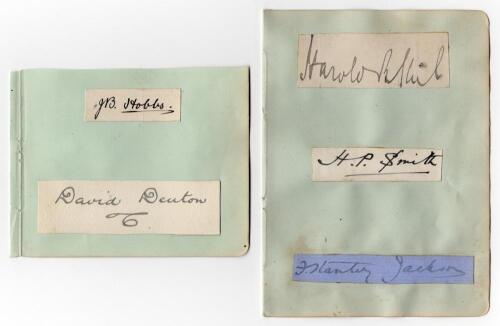 J.B. Hobbs.
David Denton
Harold
H. P. Smith
F Stanley Jackson